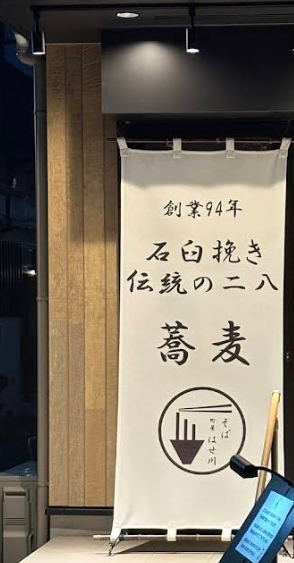 創業94年
石臼挽き
伝統の二八
蕎麦
そば
はせ川